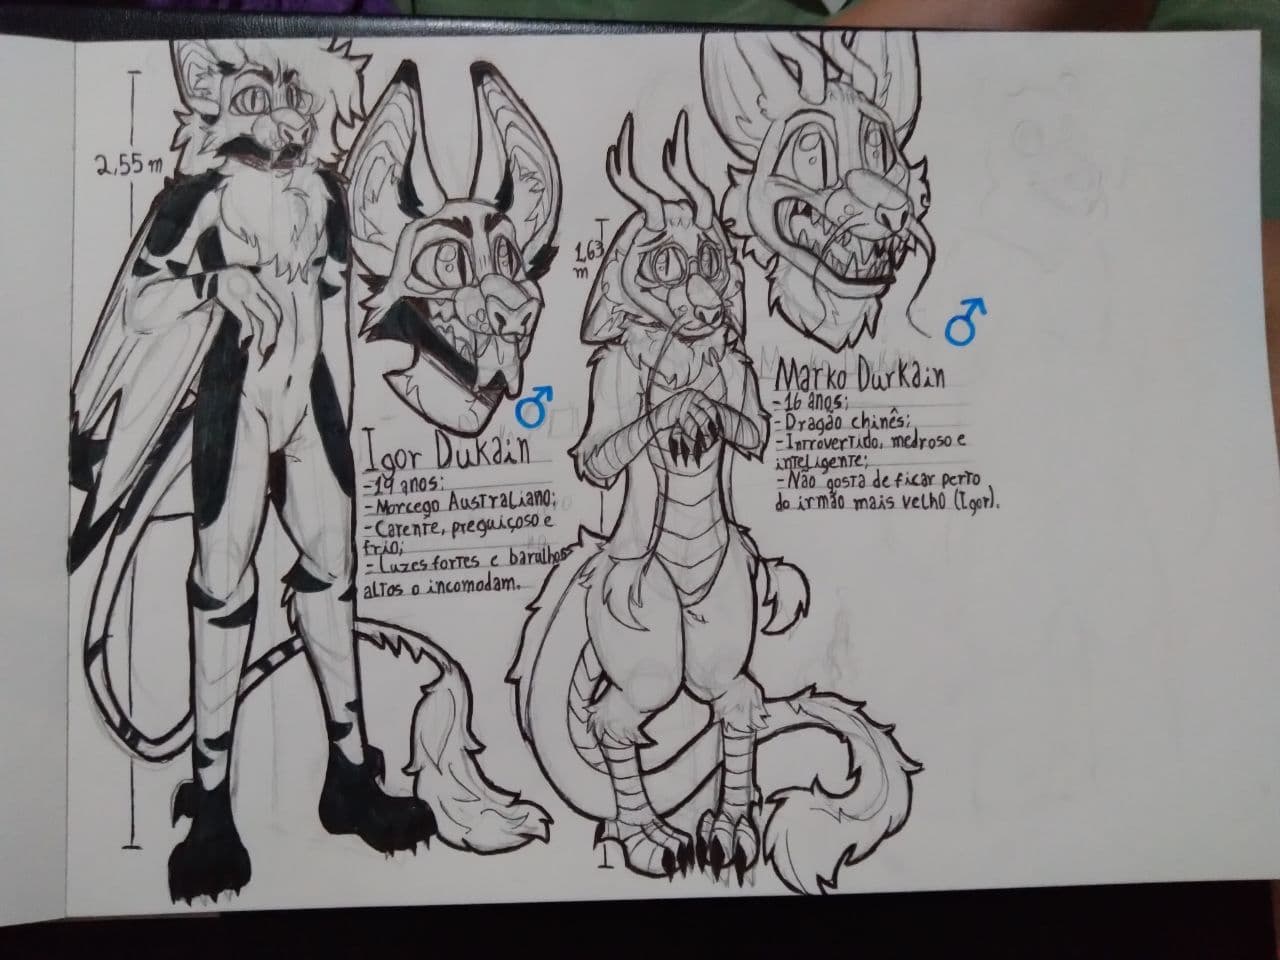 2,55 m
Igor Dukain
-19 anos;
-Morcego Australiano;
-Carente, preguiçoso e
frio;
-Luzes fortes e barulhos
altos o incomodam.
1,63
m
Marko Durkain
-16 anos;
-Dragão chinês;
-Introvertido, medroso e
inteligente;
-Não gosta de ficar perto
do irmão mais velho (Igor).